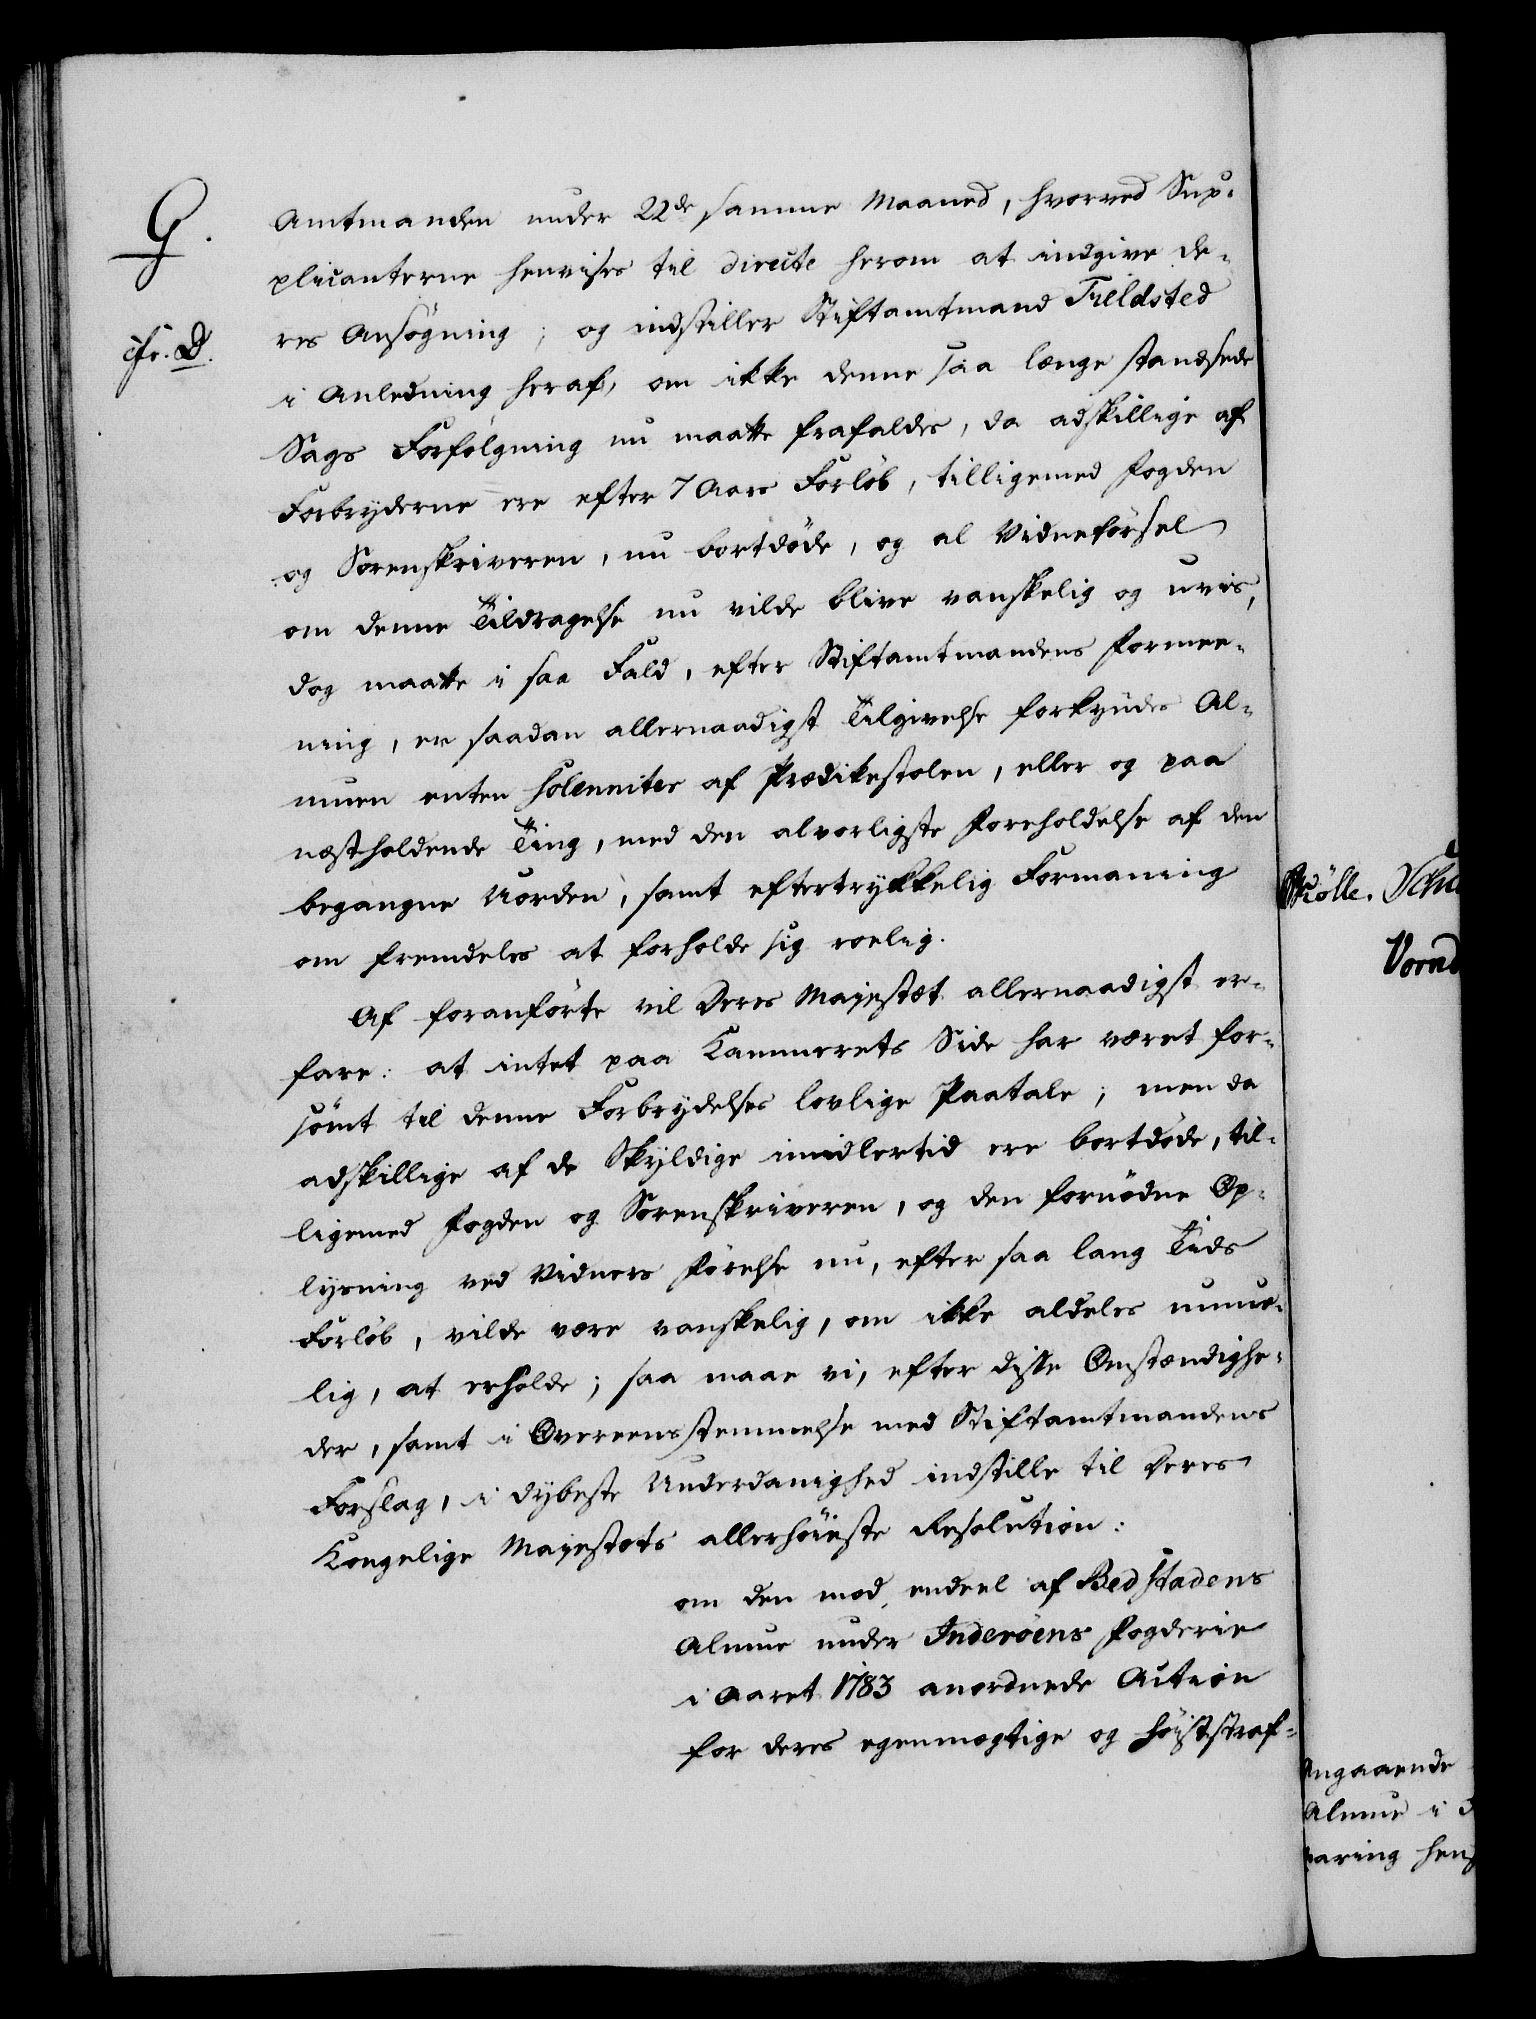 G.
cfr. D.
Amtmanden under 22de samme Maaned, hvorved Sup-
plicanterne henvises til directe herom at indgive de-
res Ansögning; og indstiller Stiftamtmand Fieldsted
i Anledning heraf, om ikke denne saa længe standsede
Sags Forfölgning nu maatte frafaldes, da adskillige af
Forbryderne ere efter 7 Aars Forlöb, tilligemed Fogden
og Sorenskriveren, nu bortdöde, og al Vidneförsel
om denne Tildragelse nu vilde blive vanskelig og uvis,
dog maatte i saa Fald, efter Stiftamtmandens Formee-
ning, en saadan allernaadigst Tilgivelse forkyndes Al-
muen enten solenniter af Prædikestolen, eller og paa
næstholdende Ting, med den alvorligste Foreholdelse af den
begangne Uorden, samt eftertrykkelig Formaning
om fremdeles at forholde sig roelig.
Af foranförte vil Deres Majestæt allernaadigst er-
fare: at intet paa Kammerets Side har været for-
sömt til denne Forbrydelses lovlige Paatale; men da
adskillige af de Skyldige imidlertid ere bortdöde, til-
ligemed Fogden og Sorenskriveren, og den fornödne Op-
lysning ved Vidners Förelse nu, efter saa lang Tids
Forlöb, vilde være vanskelig, om ikke aldeles umue-
lig, at erholde; saa maae vi, efter disse Omstændighe-
der, samt i Overeensstemmelse med Stiftamtmandens
Forslag, i dybeste Underdanighed indstille til Deres
Kongelige Majestæts allerhöieste Resolution:
om den mod endeel af Bedstadens
Almue under Inderöens Fogderie
i Aaret 1783 anordnede Action
for deres egenmægtige og höiststraf-
Mölle. Schu
Vornd
Angaaende
Almue i
varing hen